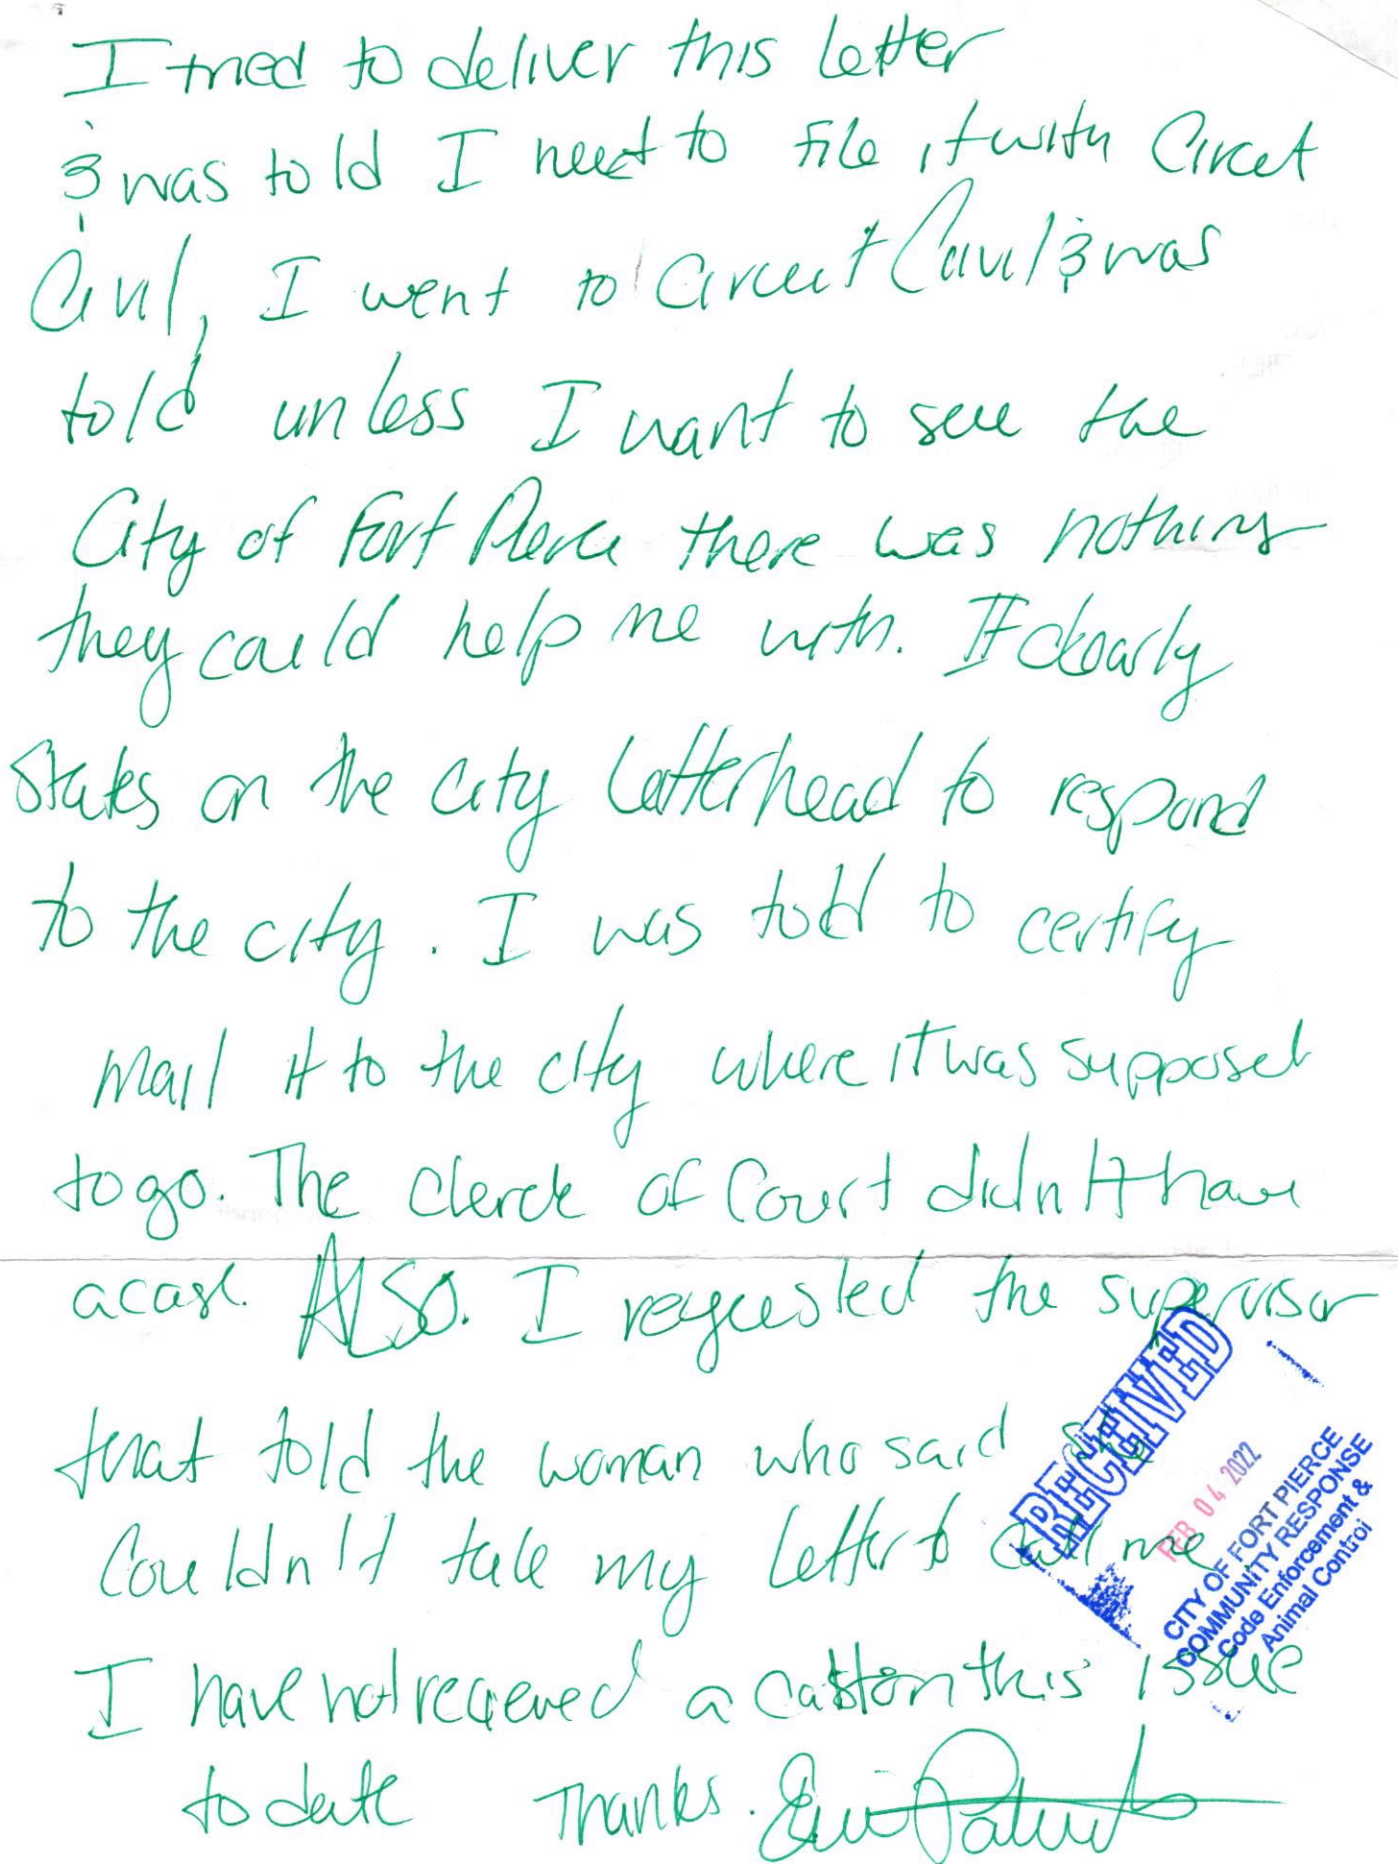 I tried to deliver this letter
& was told I need to file it with Circut
Civil, I went to Circuit Civil & was
told unless I want to sue the
City of Fort Pierce there was nothing
they could help me with. It clearly
States on the city letterhead to respond
to the city. I was told to certify
mail it to the city where it was supposed
to go. The clerck of Court didn't have
a case. ALSO. I requested the supervisor
that told the woman who said she
Couldn't take my letter to call me
I have not recieved a call on this issue
to date Thanks.
RECEIVED
FEB 04 2022
CITY OF FORT PIERCE
COMMUNITY RESPONSE
Code Enforcement &
Animal Control